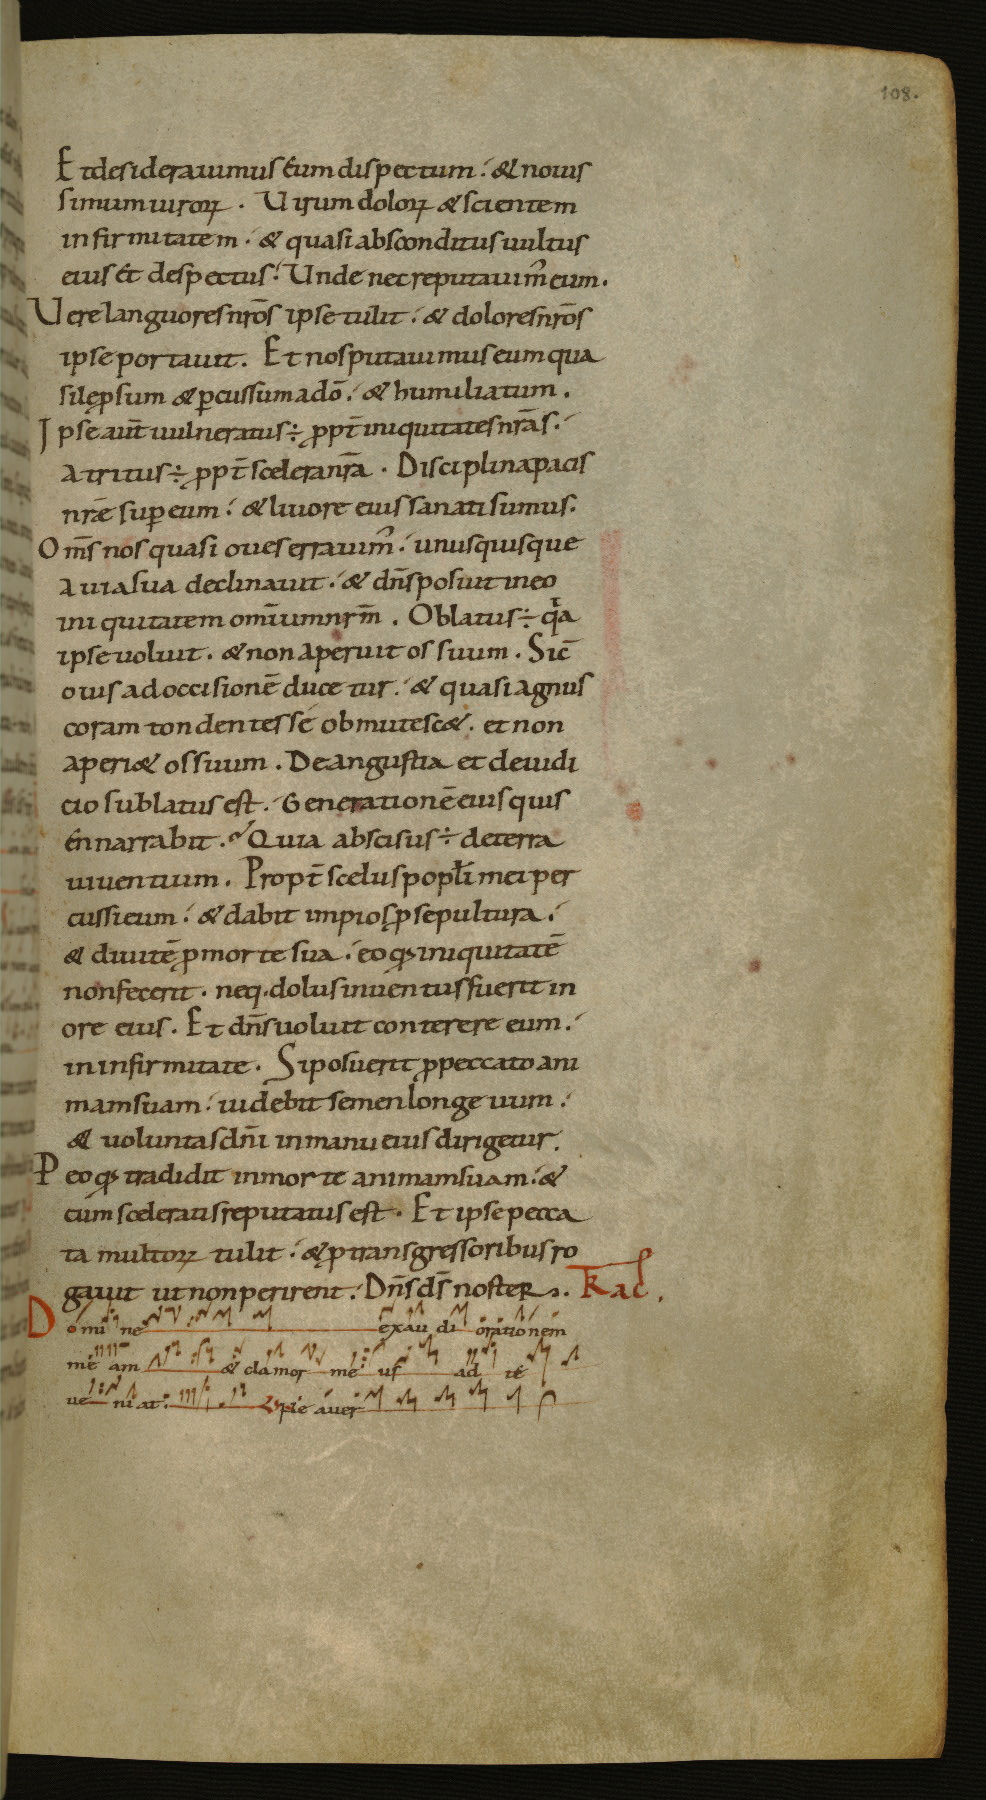 108.
Et desiderauimus eum dispectum. & nouis
simum uiroꝝ. Uirum doloꝝ & scientem
infirmitatem. & quasi absconditus uultus
eius & despectus. Unde nec reputauim̄ eum.
Uere languores nr̄os ipse tulit. & dolores nr̄os
ipse portauit. Et nos putauimus eum qua
si lep̱sum & ꝑcussum a dō. & humiliatum.
Ipse aūt uulneratus ÷ ꝓpt̄ iniquitates nr̄as.
Atritus ÷ ꝓpt̄ scelera nr̄a. Disciplina pacis
nr̄æ suꝑ eum. & liuore eius sanati sumus.
Om̄s nos quasi oues errauim̄. unusquisque
a uia sua declinauit. & dn̄s posuit in eo
iniquitatem omīum nr̄m̄. Oblatus ÷ qa
ipse uoluit. & non aperuit os suum. Sic̄
ouis ad occisionē ducetur. & quasi agnus
coram tondentes se obmutesc&. et non
aperi& os suum. De angustia et de iudi
cio sublatus est. Generationē eius quis
ennarrabit. Quia abscisus ÷ de terra
uiuentium. Propt̄ scelus popłi mei per
cussi eum. & dabit impios ꝓ sepultura.
& diuitē ꝓ morte sua. eo qꝫ iniquitatē
non fecerit. neq. dolus inuentus fuerit in
ore eius. Et dn̄s uoluit conterere eum.
in infirmitate. Si posuerit ꝓ peccato ani
mam suam. uidebit semen longeuum.
& uoluntas dn̄i in manu eius dirigetur.
P eo qꝫ tradidit in morte animam suam. &
cum sceleratis reputatus est. Et ipse pecca
ta multoꝝ tulit. & ꝓ transgressoribus ro
gauit ut non perirent. Dn̄s ds̄ noster. Rac.
Domine exaudi orationem
meam & clamor meus ad te
ueniat. Ne auer